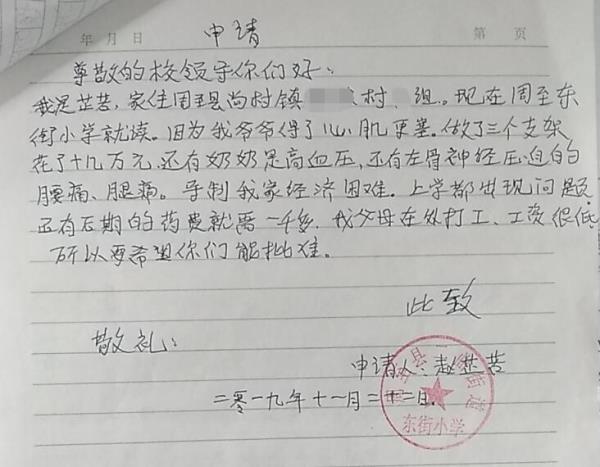 年 月 日
第 页
申请
尊敬的校领导你们好：
我是芷苦，家住周至县尚村镇 村 组。现在周至东
街小学就读。因为我爷爷得了心肌更塞。做了三个支架
花了十几万元.还有奶奶是高血压，还有左骨神经压迫的
腰痛、腿痛。导制我家经济困难。上学都出现问题
还有后期的药费就需一千多，我父母在外打工、工资很低
所以再希望你们能批准。
此致
敬礼：
申请人：赵芷苦
二零一九年十一月二十二日.
周至县 街道
东街小学